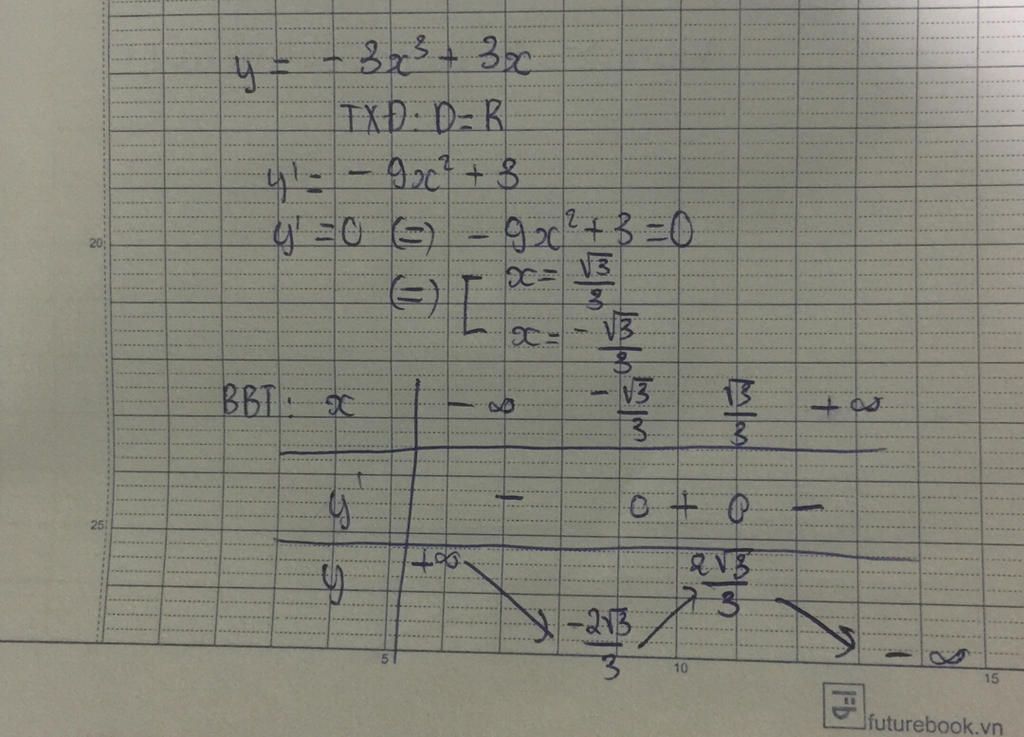 y = - 3x³ + 3x
TXĐ: D = R
y' = - 9x² + 3
y' = 0 (=) - 9x² + 3 = 0
(=) [ x = √3/3
x = - √3/3
BBT: x | - ∞ - √3/3 √3/3 + ∞
y' | - 0 + 0 -
y | +∞ ↘ -2√3/3 ↗ 2√3/3 ↘ - ∞
20
25
5 10 15
futurebook.vn